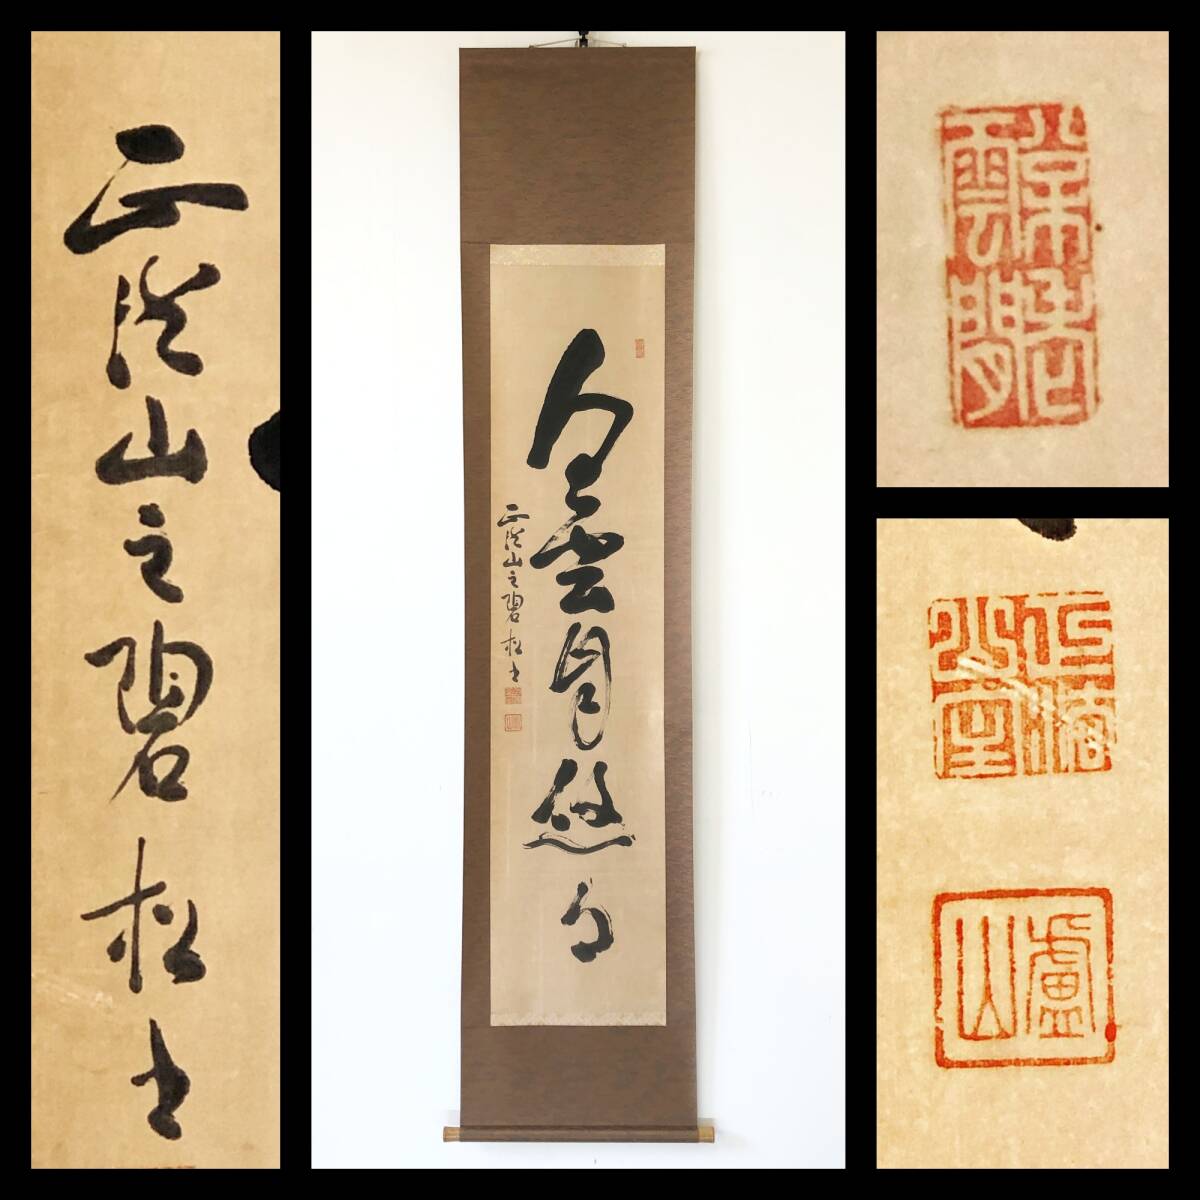 正法山之碧松書
白雲自悠々
正法山之碧松書
盧山